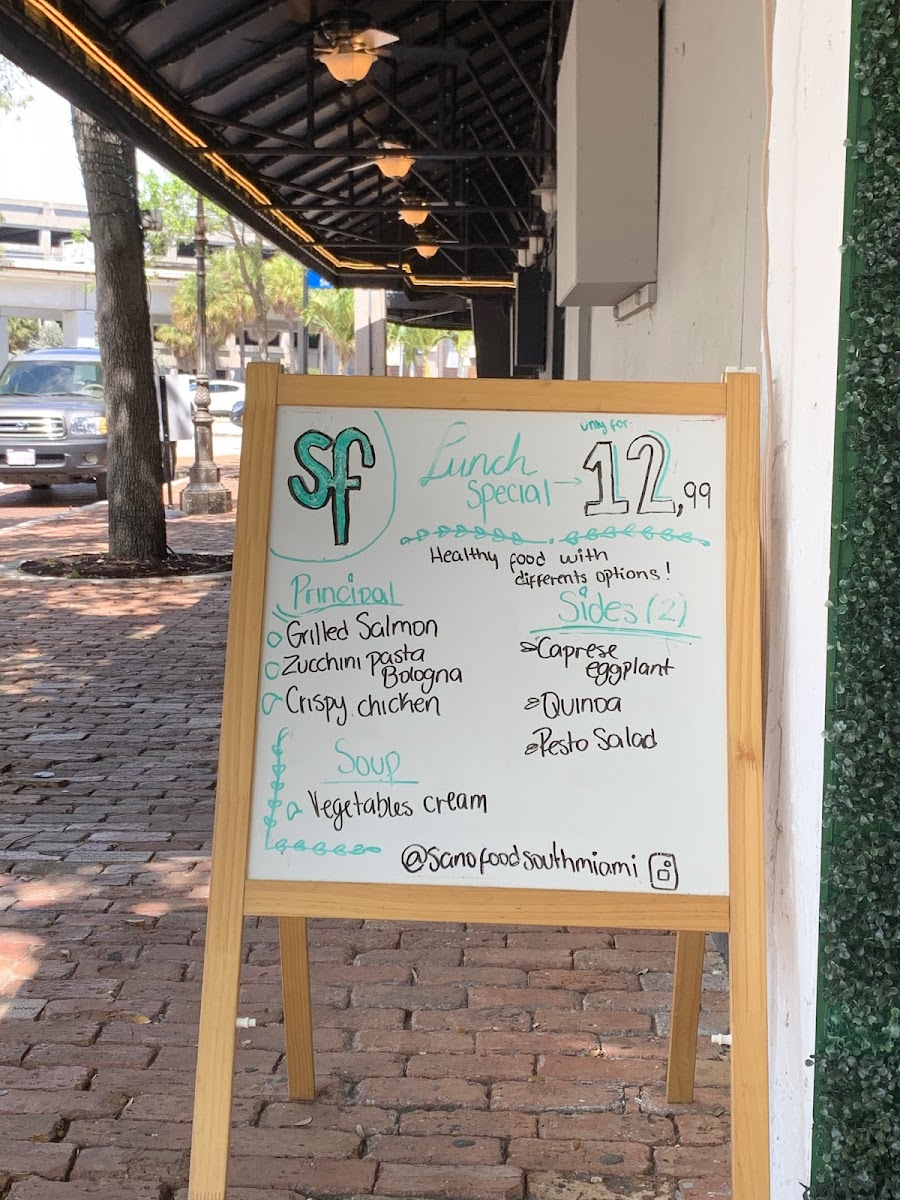 sf
Lunch
Special →
only for:
12,99
Healthy food with
differents options!
Principal
Grilled Salmon
Zucchini pasta
Bologna
Crispy chicken
Sides (2)
Caprese
eggplant
Quinoa
Pesto Salad
Soup
Vegetables cream
@sanofoodsouthmiami